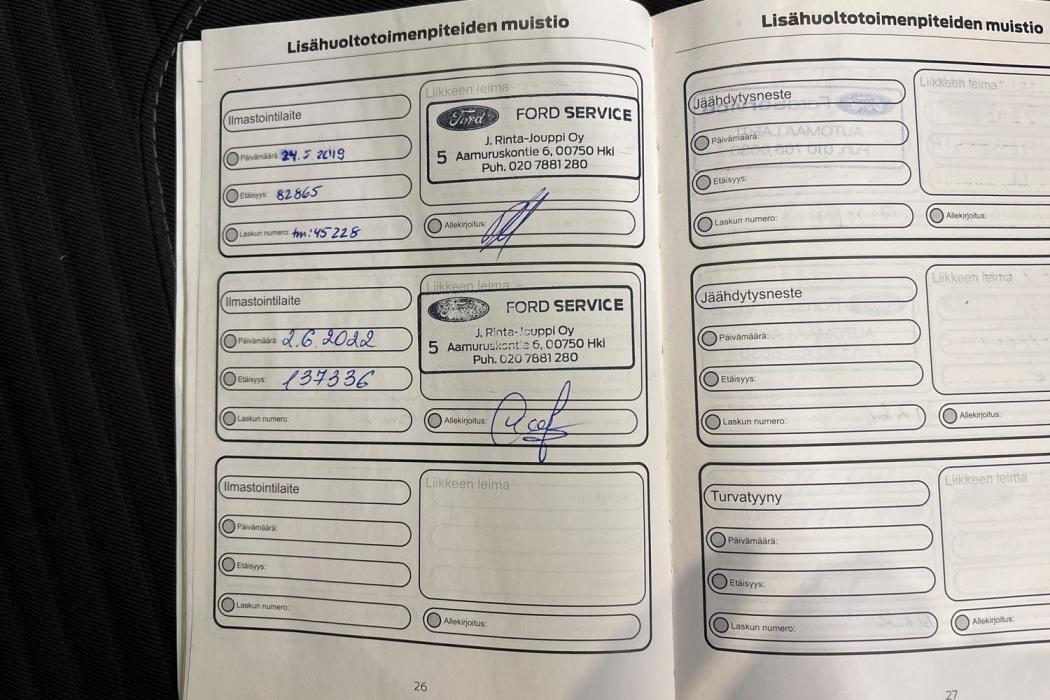 Lisähuoltotoimenpiteiden muistio
Ilmastointilaite
Päivämäärä: 24.5 2019
Etäisyys: 82865
Laskun numero: tm:45228
Liikkeen leima
Ford FORD SERVICE
J. Rinta-Jouppi Oy
5 Aamuruskontie 6, 00750 Hki
Puh. 020 7881 280
Allekirjoitus:
Ilmastointilaite
Päivämäärä: 2.6.2022
Etäisyys: 137336
Laskun numero:
Liikkeen leima
Ford FORD SERVICE
J. Rinta-Jouppi Oy
5 Aamuruskontie 6, 00750 Hki
Puh. 020 7881 280
Allekirjoitus:
Ilmastointilaite
Päivämäärä:
Etäisyys:
Laskun numero:
Liikkeen leima
Allekirjoitus:
26
Lisähuoltotoimenpiteiden muistio
Jäähdytysneste
Päivämäärä:
Etäisyys:
Laskun numero:
Liikkeen leima
Allekirjoitus:
Jäähdytysneste
Päivämäärä:
Etäisyys:
Laskun numero:
Liikkeen leima
Allekirjoitus:
Turvatyyny
Päivämäärä:
Etäisyys:
Laskun numero:
Liikkeen leima
Allekirjoitus:
27